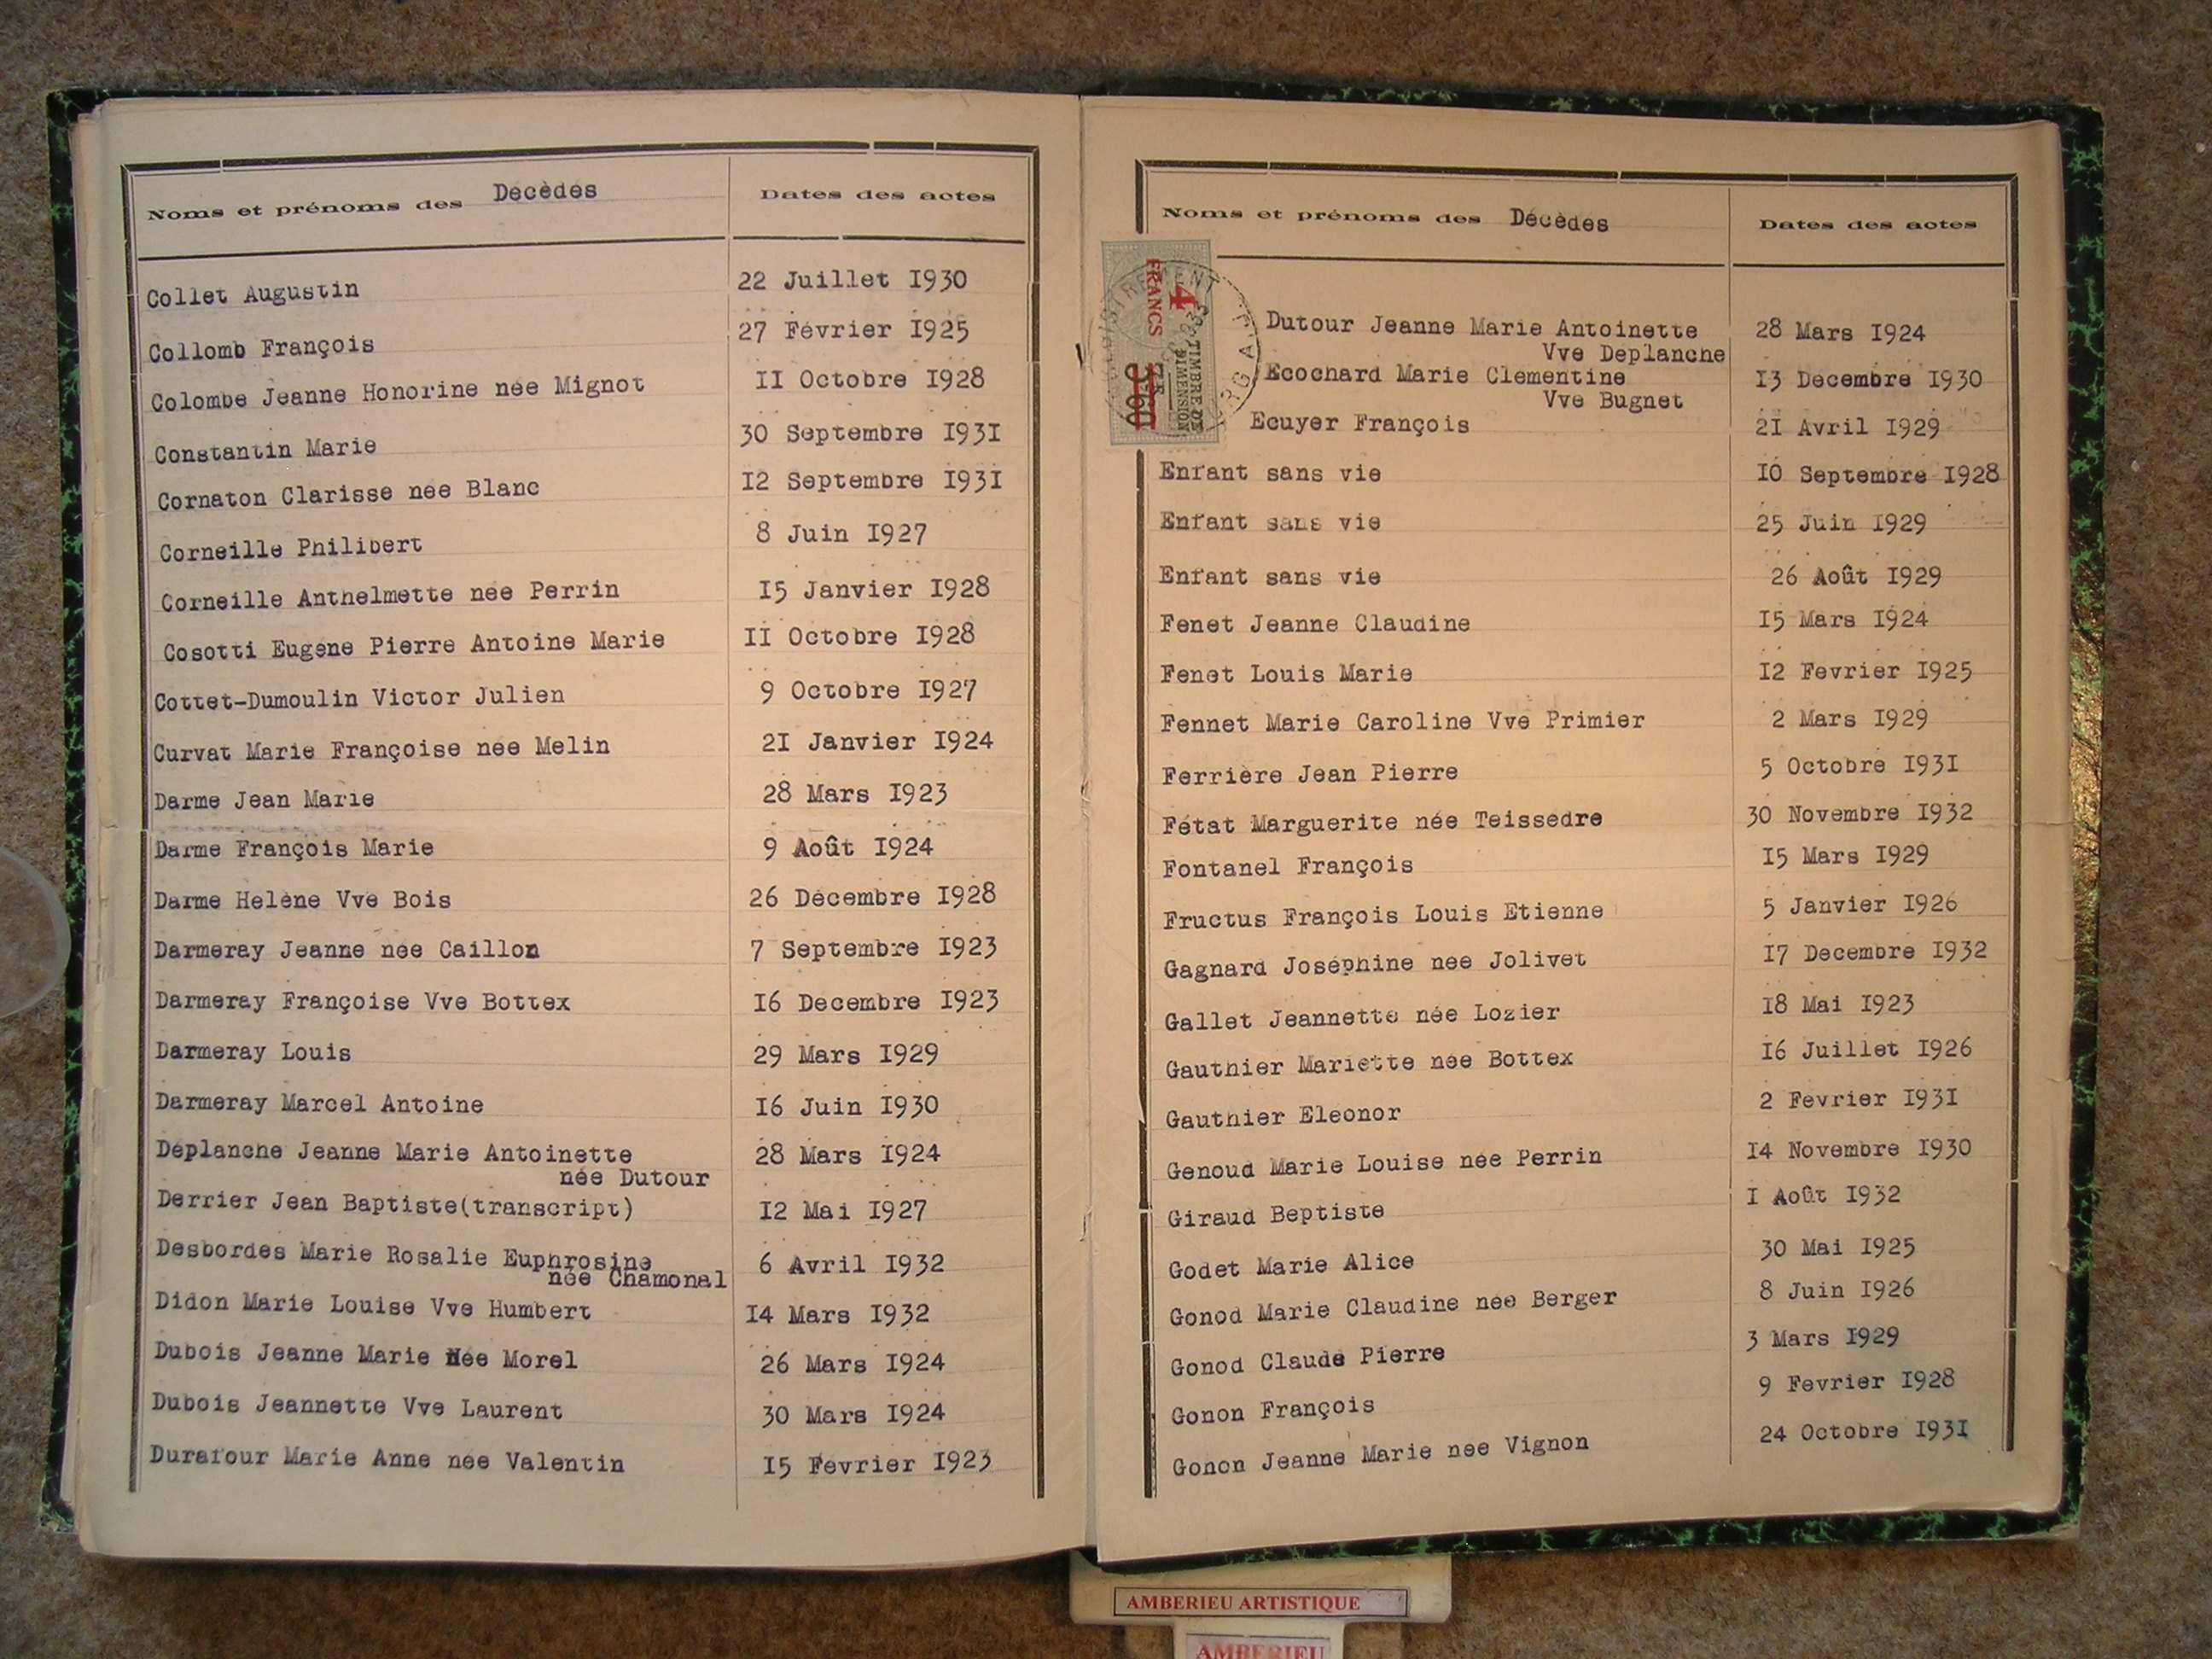 Noms et prénoms des Décèdés Dates des actes
Collet Augustin 22 Juillet I930
Collomb François 27 Février I925
Colombe Jeanne Honorine née Mignot II Octobre I928
Constantin Marie 30 Septembre I93I
Cornaton Clarisse née Blanc I2 Septembre I93I
Corneille Philibert 8 Juin I927
Corneille Anthelmette née Perrin I5 Janvier I928
Cosotti Eugène Pierre Antoine Marie II Octobre I928
Cottet-Dumoulin Victor Julien 9 Octobre I927
Curvat Marie Françoise née Melin 2I Janvier I924
Darme Jean Marie 28 Mars I923
Darme François Marie 9 Août I924
Darme Helène Vve Bois 26 Décembre I928
Darmeray Jeanne née Caillon 7 Septembre I923
Darmeray Françoise Vve Bottex I6 Decembre I923
Darmeray Louis 29 Mars I929
Darmeray Marcel Antoine I6 Juin I930
Déplanche Jeanne Marie Antoinette 28 Mars I924
née Dutour
Derrier Jean Baptiste(transcript) I2 Mai I927
Desbordes Marie Rosalie Euphrosine 6 Avril I932
née Chamonal
Didon Marie Louise Vve Humbert I4 Mars I932
Dubois Jeanne Marie Née Morel 26 Mars I924
Dubois Jeannette Vve Laurent 30 Mars I924
Durafour Marie Anne née Valentin I5 Février I923
Noms et prénoms des Décèdés Dates des actes
4 FRANCS
TIMBRE DE
DIMENSION
3F60
Dutour Jeanne Marie Antoinette 28 Mars I924
Vve Deplanche
Ecochard Marie Clementine I3 Décembre I930
Vve Bugnet
Ecuyer François 2I Avril I929
Enfant sans vie I0 Septembre I928
Enfant sans vie 25 Juin I929
Enfant sans vie 26 Août I929
Fenet Jeanne Claudine I5 Mars I924
Fenet Louis Marie I2 Fevrier I925
Fennet Marie Caroline Vve Primier 2 Mars I929
Ferrière Jean Pierre 5 Octobre I93I
Fétat Marguerite née Teissedre 30 Novembre I932
Fontanel François I5 Mars I929
Fructus François Louis Etienne 5 Janvier I926
Gagnard Joséphine née Jolivet I7 Decembre I932
Gallet Jeannette née Lozier I8 Mai I923
Gauthier Mariette née Bottex I6 Juillet I926
Gauthier Eleonor 2 Fevrier I93I
Genoud Marie Louise née Perrin I4 Novembre I930
Giraud Beptiste I Août I932
Godet Marie Alice 30 Mai I925
Gonod Marie Claudine née Berger 8 Juin I926
Gonod Claude Pierre 3 Mars I929
Gonon François 9 Fevrier I928
Gonon Jeanne Marie née Vignon 24 Octobre I93I
AMBERIEU ARTISTIQUE
AMBERIEU